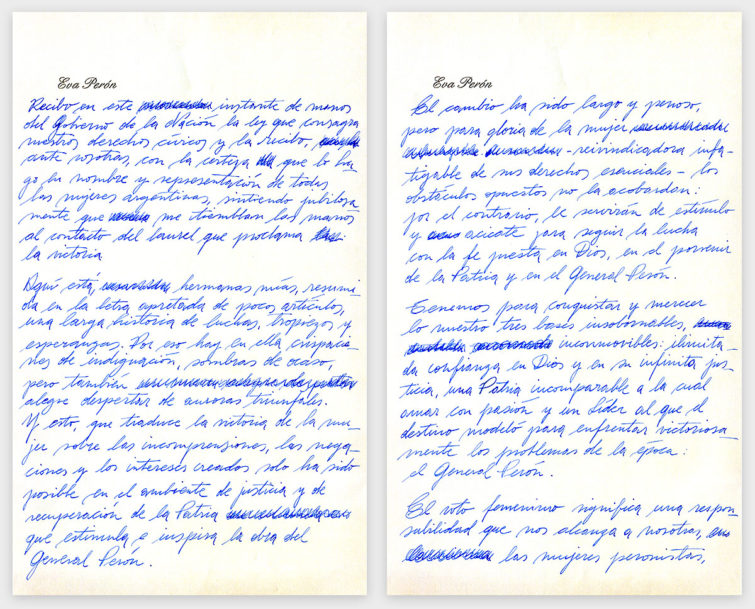 Eva Perón
Recibo en este instante de manos
del Gobierno de la Nación la ley que consagra
nuestros derechos cívicos y la recibo,
ante vosotras, con la certeza que lo ha-
go en nombre y representación de todas
las mujeres argentinas, sintiendo jubilosa
mente que me tiemblan las manos
al contacto del laurel que proclama
la victoria
Aquí está, hermanas mías, resumi
da en la letra apretada de pocos artículos,
una larga historia de luchas, tropiezos y
esperanzas. Por eso hay en ella crispacio
nes de indignación, sombras de ocaso,
pero también
alegre despertar de auroras triunfales.
Y esto, que traduce la victoria de la mu-
jer sobre las incomprensiones, las nega-
ciones y los intereses creados solo ha sido
posible en el ambiente de justicia y de
recuperación de la Patria
que estimula e inspira la obra del
General Perón.
Eva Perón
El cambio ha sido largo y penoso,
pero para gloria de la mujer
-reivindicadora infa-
tigable de sus derechos esenciales- los
obstáculos opuestos no la acobardan:
por el contrario, le servirán de estímulo
y acicate para seguir la lucha
con la fe puesta en Dios, en el porvenir
de la Patria y en el General Perón.
Tenemos para conquistar y merecer
lo nuestro tres bases insobornables,
inconmovibles: ilimita-
da confianza en Dios y en su infinita jus-
ticia, una Patria incomparable a la cual
amar con pasión y un líder al que el
destino modeló para enfrentar victoriosa-
mente los problemas de la época:
el General Perón.
El voto femenino significa una respon-
sabilidad que nos alcanza a nosotras,
las mujeres peronistas,